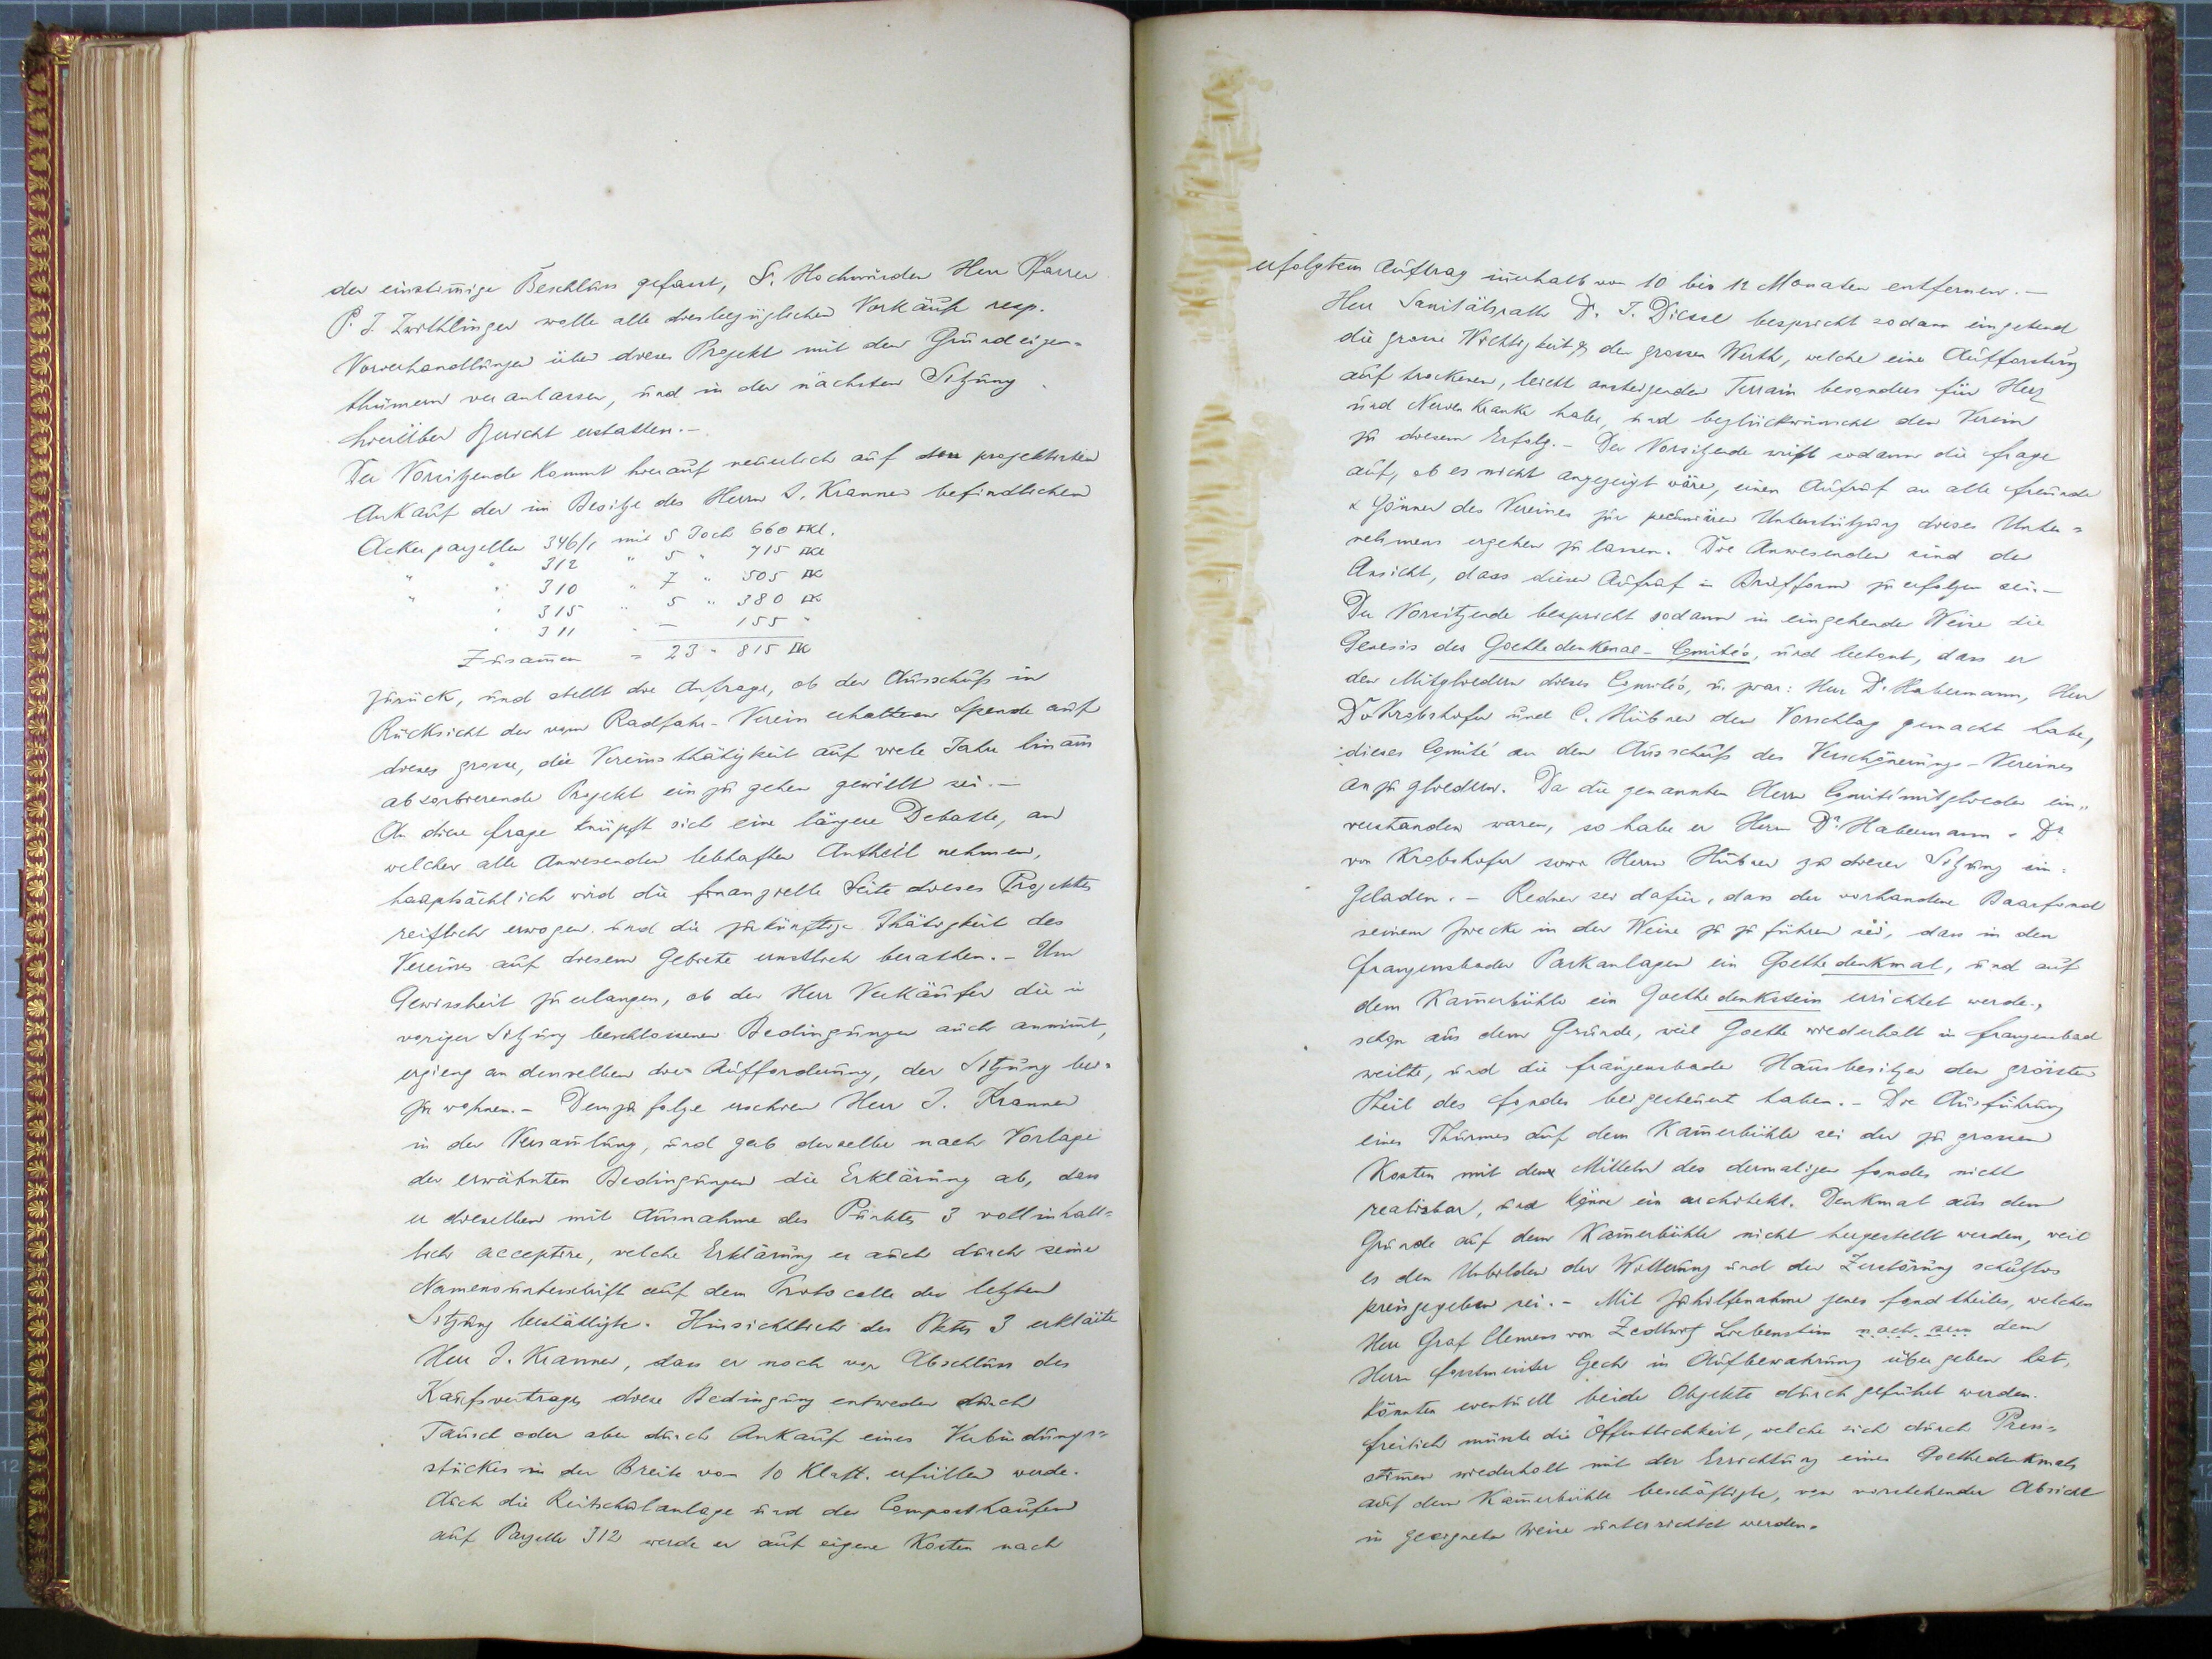 der einstim̅ige Beschluss gefasst, S. Hochwürden Herr Pfarrer
P. J. Zwithlinger wolle alle diesbezüglichen Vorkäufe resp.
Vorverhandlungen über dieses Projekt mit den Grundeigen=
thümern veranlassen, und in der nächsten Sitzung
hierüber Bericht erstatten. –
Der Vorsitzende kommt hierauf neuerlich auf den projektirten
Ankauf der im Besitze des Herrn J. Kranner befindlichen
Ackerparzellen 346/1 mit 5 Joch 660 □Kl.
" " 312 " 5 " 715 □Kl
" " 310 " 7 " 505 □Kl
" 315 " 5 " 380 □Kl
" 311 " – 155 "
Zusam̅en = 23 " 815 □Kl
zurück, und stellt die Anfrage, ob der Ausschuß in
Rücksicht der vom Radfahr-Verein erhaltenen Spende auf
dieses grosse, die Vereinsthätigkeit auf viele Jahre hinaus
absorbierende Projekt einzugehen gewillt sei. –
An diese Frage knüpft sich eine längere Debatte, an
welcher alle Anwesenden lebhaften Antheil nehmen,
hauptsächlich wird die finanzielle Seite dieses Projektes
reiflich erwogen und die zukünftige Thätigkeit des
Vereines auf diesem Gebiete ernstlich berathen. – Um
Gewissheit zu erlangen, ob der Herr Verkäufer die in
voriger Sitzung beschlossenen Bedingungen auch annim̅t,
ergieng an denselben die Aufforderung, der Sitzung bei=
zuwohnen. – Demzufolge erschien Herr J. Kranner
in der Versam̅lung, und gab derselbe nach Vorlage
der erwähnten Bedingungen die Erklärung ab, dass
er dieselben mit Ausnahme des Punktes 3 vollinhalt=
lich acceptire, welche Erklärung er auch durch seine
Namensunterschrift auf dem Protocolle der letzten
Sitzung bestättigte. Hinsichtlich des Pktes 3 erklärte
Herr J. Kranner, dass er noch vor Abschluss des
Kaufvertrages diese Bedingung entweder durch
Tausch oder aber durch Ankauf eines Verbindungs=
stückes in der Breite von 10 Klaft. erfüllen werde.
Auch die Reitschulanlage und der Composthaufen
auf Parzelle 312 werde er auf eigene Kosten nach
erfolgtem Auftrag in̅erhalb von 10 bis 12 Monaten entfernen. –
Herr Sanitätsrath Dr. J. Diessl bespricht sodann eingehend
die grosse Wichtigkeit & den grossen Werth, welche eine Aufforstung
auf trockenem, leicht ansteigenden Terrain besonders für Herz
und Nerven Kranke habe, und beglückwünscht den Verein
zu diesem Erfolg. – Der Vorsitzende wirft sodann die Frage
auf, ob es nicht angezeigt wäre, einen Aufruf an alle Freunde
& Gönner des Vereines zur pecuniären Unterstützung dieses Unter=
nehmens ergehen zu lassen. Die Anwesenden sind der
Ansicht, dass dieser Aufruf in Briefform zu erfolgen sei. –
Der Vorsitzende bespricht sodann in eingehender Weise die
Genesis des Goethedenkmal-Comités, und betont, dass er
den Mitgliedern dieses Comités, u. zwar: Herr Dr. Habermann, Herr
Dr v Krobshofer und C. Hübner den Vorschlag gemacht habe,
dieses Comité an den Ausschuß des Verschönerungs-Vereines
anzugliedern. Da die genannten Herrn Comitémitglieder ein"
verstanden waren, so habe er Herrn Dr. Habermann & Dr.
von Krobshofer sowie Herrn Hübner zu dieser Sitzung ein=
geladen. – Redner sei dafür, dass der vorhandene Baarfond
seinem Zwecke in der Weise zuzuführen sei, dass in den
Franzensbader Parkanlagen ein Goethedenkmal, und auf
dem Kam̅erbühle ein Goethedenkstein errichtet werde,
schon aus dem Grunde, weil Goethe wiederholt in Franzensbad
weilte, und die Franzensbader Hausbesitzer den grössten
Theil des Fondes beigesteuert haben. – Die Ausführung
eines Thurmes auf dem Kam̅erbühle sei der zu grossen
Kosten mit den Mitteln des dermaligen Fondes nicht
realisbar, und könne ein architekt. Denkmal aus dem
Grunde auf dem Kam̅erbühle nicht hergestellt werden, weil
es den Unbilden der Witterung und der Zerstörung schutzlos
preisgegeben sei. – Mit Zuhilfenahme jenes Fondtheiles, welchen
Herr Graf Clemens von Zedtwitz Liebenstein dem
Herrn Forstmeister Gech in Aufbewahrung übergeben hat,
könnten eventuell beide Objekte durchgeführt werden.
Freilich müsste die Öffentlichkeit, welche sich durch Press=
stim̅en wiederholt mit der Errichtung eines Goethedenkmals
auf dem Kam̅erbühle beschäftigte, von vorstehender Absicht
in geeigneter Weise unterrichtet werden.